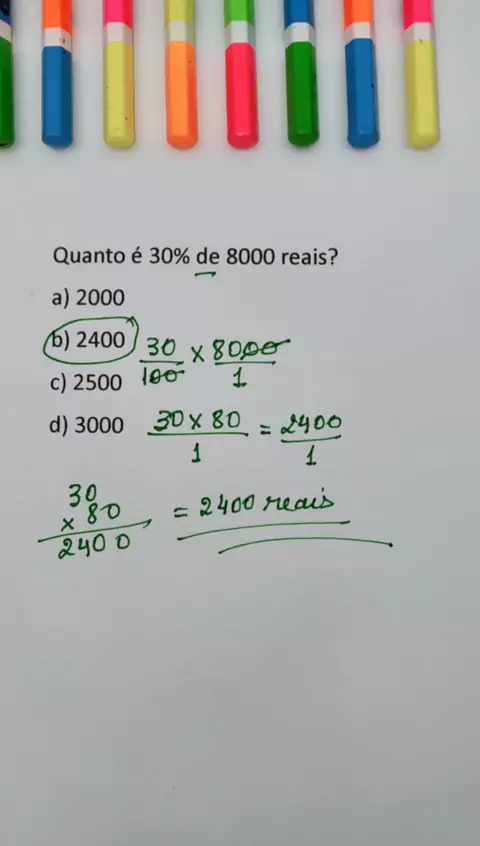 Quanto é 30% de 8000 reais?
a) 2000
b) 2400
30/100 × 8000/1
c) 2500
d) 3000
30 × 80/1 = 2400/1
30
× 80
2400
= 2400 reais